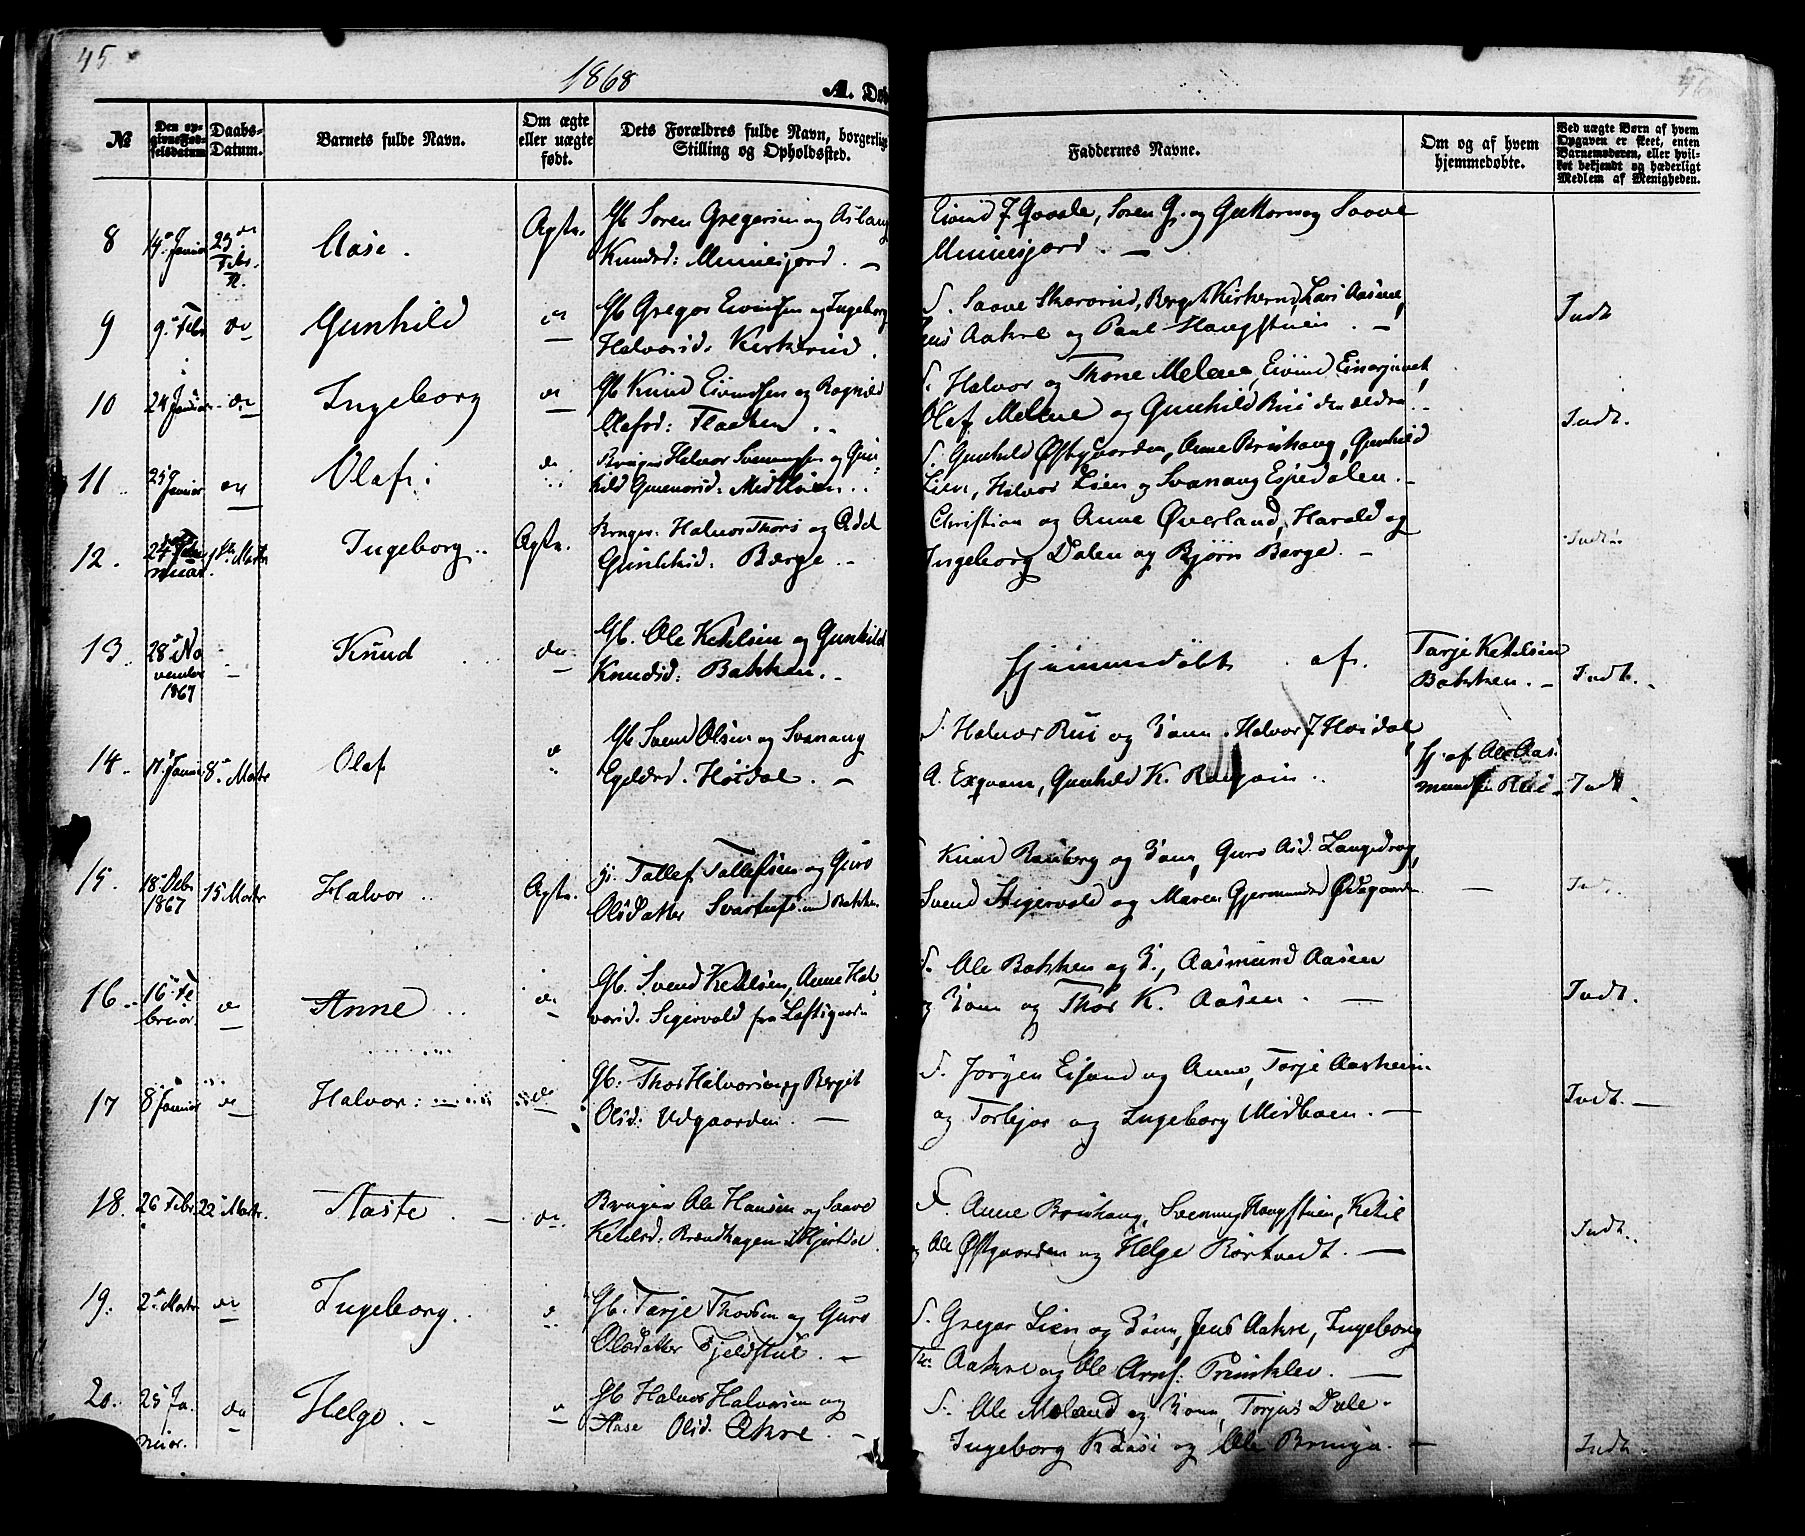 45
1868
A. Døb
46
№
Den op-
givne Fød-
selsdatum
Daabs-
Datum.
Barnets fulde Navn.
Om ægte
eller uægte
født.
Dets Forældres fulde Navn, borgerlige
Stilling og Opholdssted.
Faddernes Navne.
Om og af hvem
hjemmedøbte.
Ved uægte Børn af hvem
Opgaven er skeet, enten
Barnemoderen, eller hvil-
ket bekjendt og hæderligt
Medlem af Menigheden.
8 14 Januar 23de Febr. Aase. Ægte. Gb Søren Gregersen og Aslaug
Knudsd: Minnesjord. —
Eivind J Qvaale, Søren G. og Guttorm og Saave
Minnesjord. —
9 9 Febr do Gunhild do Gb Gregor Eivindsen og Ingeborg
Halvorsd: Kirkerud.
S. Saave Skarerud, Bergit Kirkerud, Lars Aasene,
Jens Aakre og Paul Haugstuen. — Indt
10 24 Januar do Ingeborg do Gb Knud Eivindsen og Ragnild
Olafsd: Flaaten.
S. Halvor og Thone Melane, Eivind
Olaf Melane og Gunhild Rui den ældre. Indt.
11 25 Januar do Olaf: do Bruger Halvor Svennungsen og Gun-
hild Gunnarsd: Midtlien.
S. Gunhild Østgaarden, Anne Brishaug, Gunhild
Lien, Halvor Lien og Svanaug Espedalen. —
12. 24 1ste Marts Ingeborg Ægte. Bruger. Halvor Thors og
Berge. —
Christian og Anne Øverland, Harald og
Ingeborg Dalen og Bjørn Berge. — Indt
13. 28 No
vember
1867 — Knud do Gb. Ole Ketilsen og Gunhild
Knudsd: Bakken. —
Hjemmedøbt af. Tarje Ketilsen
Bakken. — Indt.
14. 17 Januar 8 Marts Olaf do Gb Svend Olsen og Svanaug
Høidal. —
S. Halvor Rui og Kone, Halvor J Høidal
A. Exqvam, Gunhild K. Hj. af Ole Aas
mundsen Rui — Indt
15. 18 Debr
1867 15 Marts Halvor Ægte. Tallef Tallefsen og Guro
Olsdatter
S. Knud Rauberg og Kone, Guro Asd. Langedrag,
Svend Sigervold og Maren Gjermundsd Ødegaarden — Indt.
16 16 Fe
bruar. do Anne do Gb. Svend Ketilsen, Anne Hal
vorsd. Sigervold fra Loftsgaarden
S. Ole Bakken og K., Aasmund Aasen
og Kone og Thor K. Aasen. — Indt.
17 8 Januar do Halvor: do Gb: Thor Halvorsen og Bergit
Olsd: Udgaarden. —
S. Jørgen Eisand og Anne, Tarje Aasheim
og Torbjør og Ingeborg Midboen. — Indt. —
18. 26 Febr 22 Marts Aaste do Bruger Ole Hansen og Saave
Ketilsd: Brændhagen i Hjertdal.
F. Anne Brishaug, Svennung Haugstuen, Ketil
og Ole Østgaarden og Helge Rørtvedt. — Indt.
19. 2 Marts do Ingeborg do Gb. Tarje Thorsen og Guro
Olsdatter Fjeldstul. —
S. Gregar Lien og Kone, Jens Aakre, Ingeborg
Th: Aakre og Ole Arnf: —
20. 25 Ja.
nuar. do Helge. do Gb Halvor Halvorsen og
Aase Olsd. Økre. —
S. Ole Moland og Kone, Torjus Dale.
Ingeborg K Aase og Ole — Indt.